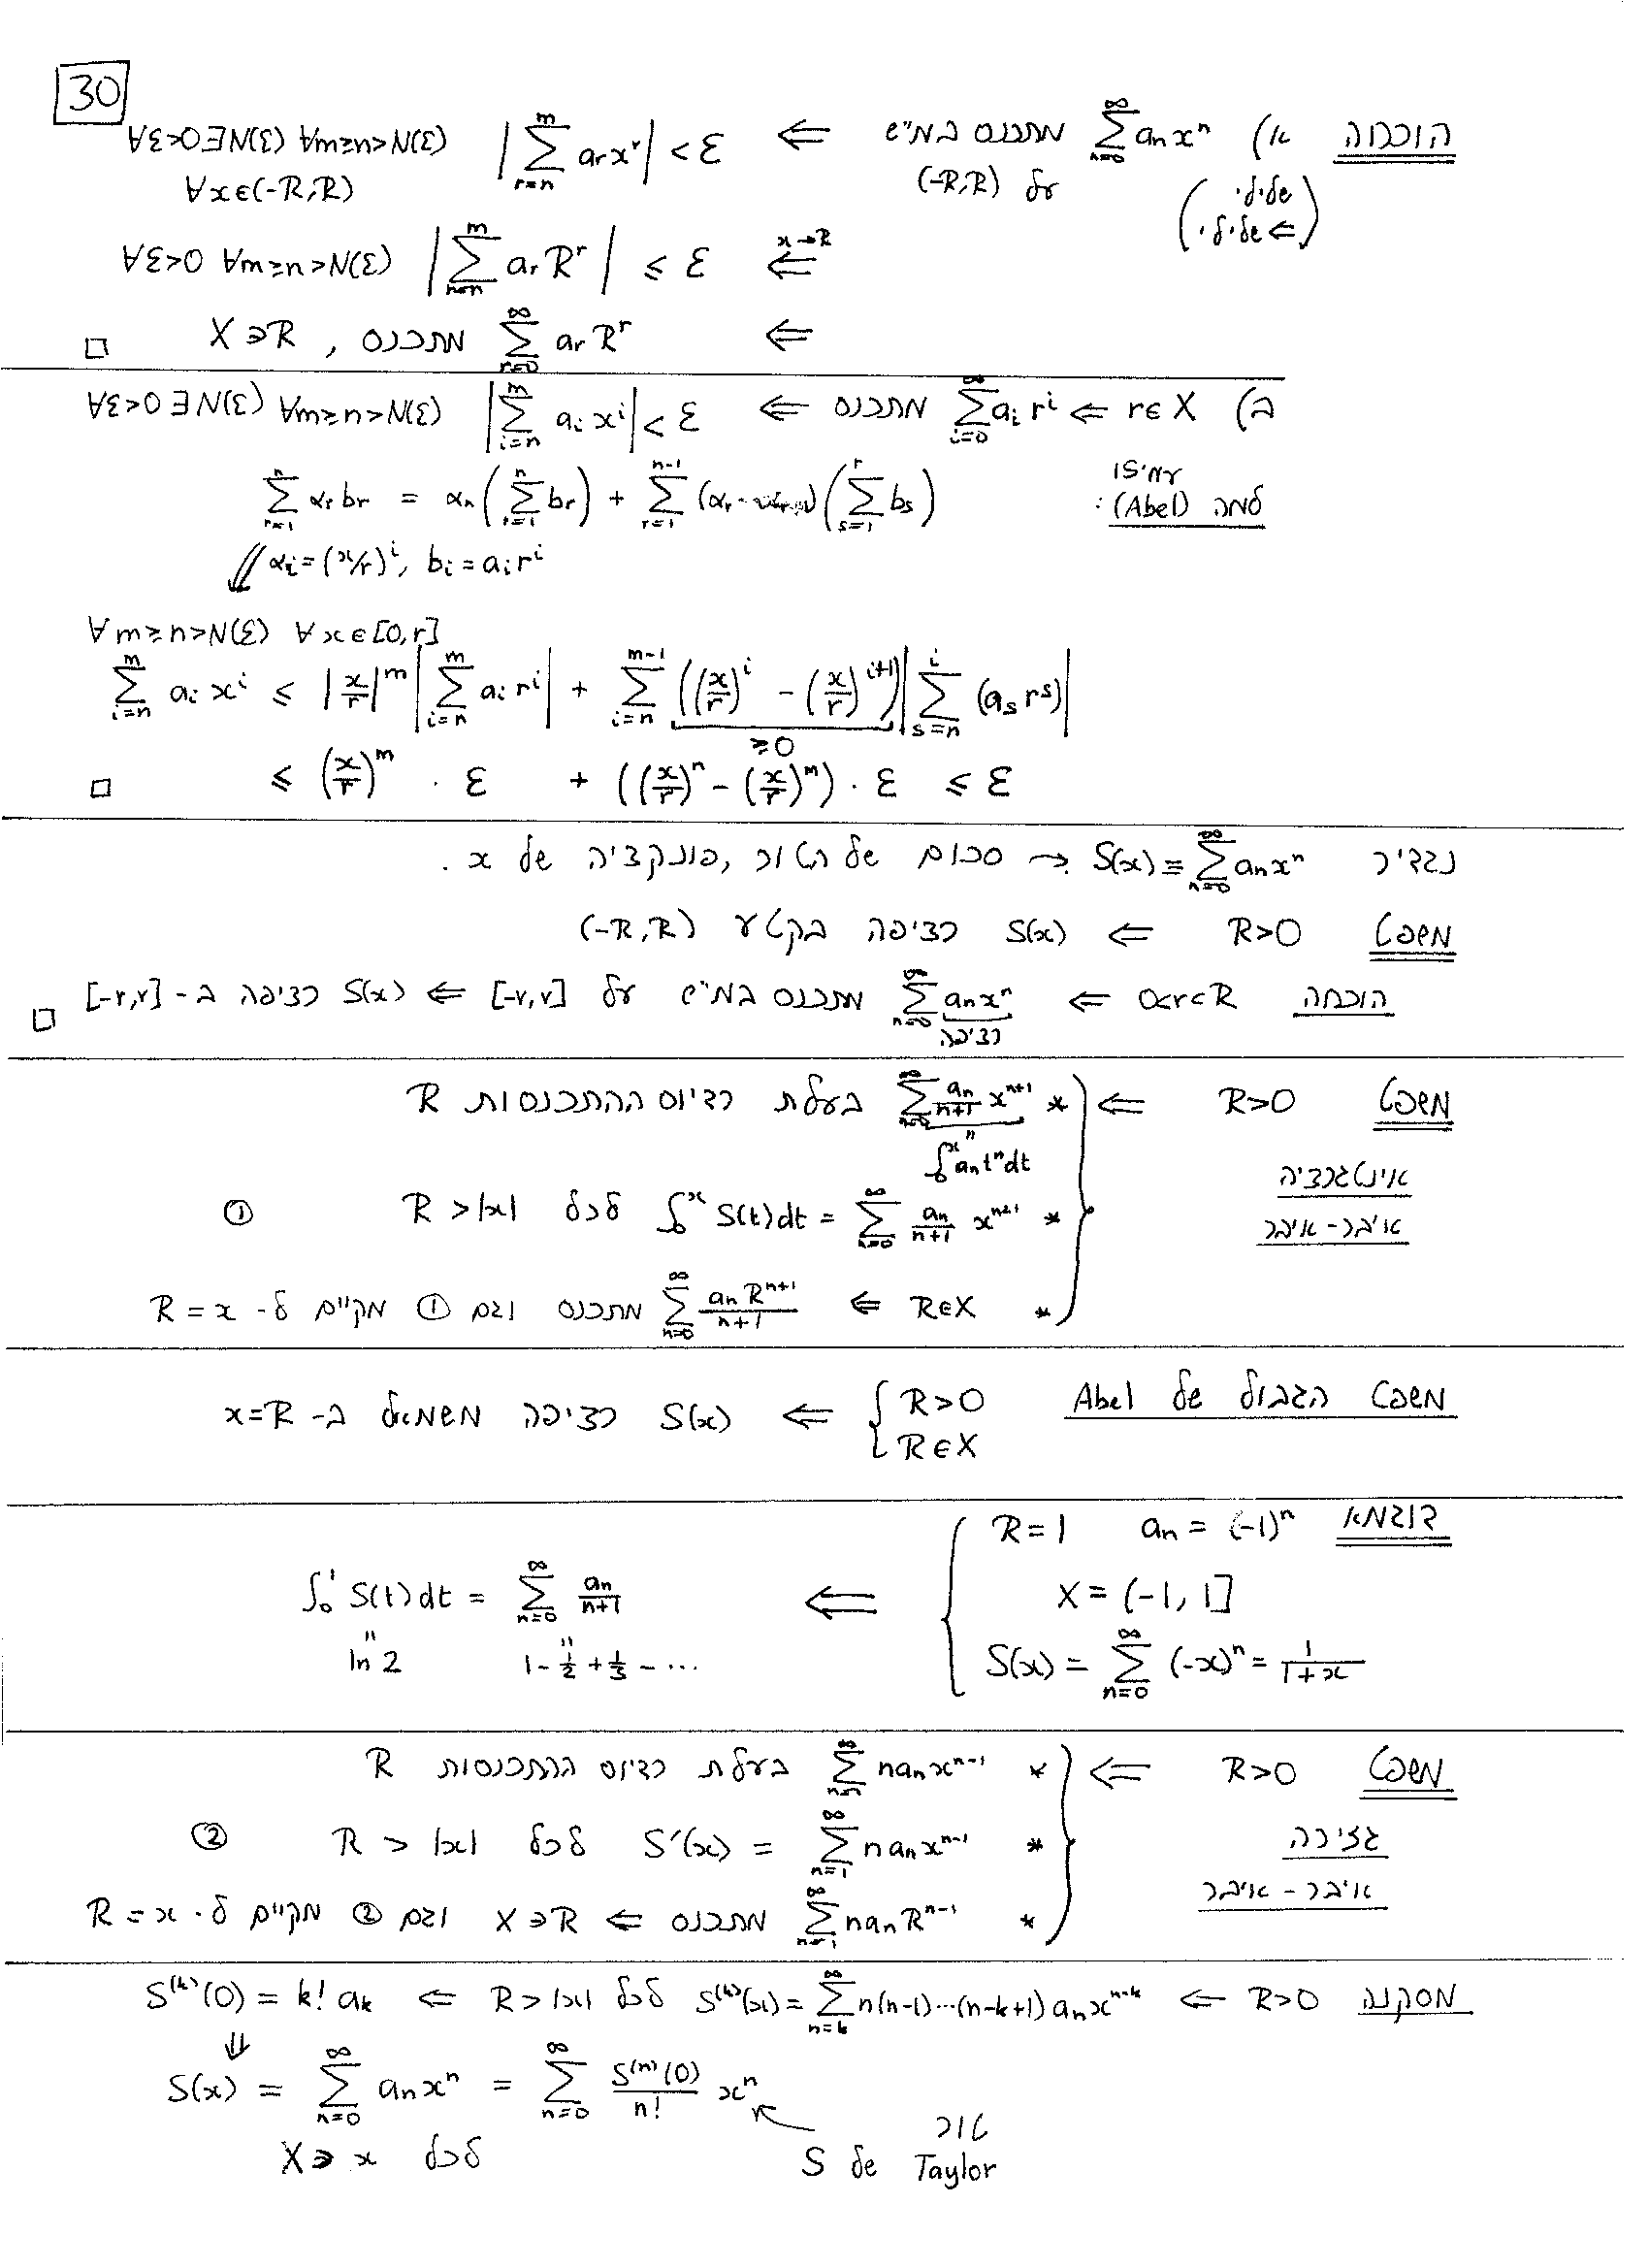 30
הוכחה א) $\sum_{n=0}^{\infty} a_n x^n$ מתכנס במ"ש על (-R,R) ⇐ $\left|\sum_{r=n}^{m} a_r x^r\right| < \varepsilon$ ∀ε>0 ∃N(ε) ∀m≥n>N(ε) ∀x∈(-R,R)
(של.ל. ⇒ של.ל.)
⇐ (x→R) $\left|\sum_{r=n}^{m} a_r R^r\right| \le \varepsilon$ ∀ε>0 ∀m≥n>N(ε)
⇐ $\sum_{r=0}^{\infty} a_r R^r$ מתכנס, X∋R □
ב) r∈X ⇐ $\sum_{i=0}^{\infty} a_i r^i$ מתכנס ⇐ $\left|\sum_{i=n}^{m} a_i x^i\right| < \varepsilon$ ∀ε>0 ∃N(ε) ∀m≥n>N(ε)
למה (Abel): $\sum_{r=1}^{n} \alpha_r b_r = \alpha_n \left(\sum_{r=1}^{n} b_r\right) + \sum_{r=1}^{n-1} (\alpha_r - \alpha_{r+1}) \left(\sum_{s=1}^{r} b_s\right)$
⇓ $\alpha_i = (x/r)^i, b_i = a_i r^i$
∀m≥n>N(ε) ∀x∈[0,r]
$\sum_{i=n}^{m} a_i x^i \le \left|\frac{x}{r}\right|^m \left|\sum_{i=n}^{m} a_i r^i\right| + \sum_{i=n}^{m-1} \underbrace{\left(\left(\frac{x}{r}\right)^i - \left(\frac{x}{r}\right)^{i+1}\right)}_{\ge 0} \left|\sum_{s=n}^{i} (a_s r^s)\right|$
$\le \left(\frac{x}{r}\right)^m \cdot \varepsilon + \left(\left(\frac{x}{r}\right)^n - \left(\frac{x}{r}\right)^m\right) \cdot \varepsilon \le \varepsilon$ □
נגדיר $S(x) \equiv \sum_{n=0}^{\infty} a_n x^n$ → סכום של הטור, פונקציה של x.
משפט R>0 ⇐ S(x) רציפה בקטע (-R,R)
הוכחה 0<r<R ⇐ $\sum_{n=0}^{\infty} \underbrace{a_n x^n}_{רציפה}$ מתכנס במ"ש על [-r,r] ⇐ S(x) רציפה ב-[-r,r] □
משפט R>0 ⇐ * $\sum_{n=0}^{\infty} \frac{a_n}{n+1} x^{n+1}$ בעלת רדיוס ההתכנסות R
$\int_0^x a_n t^n dt$
אינטגרציה
איבר-איבר * $\int_0^x S(t)dt = \sum_{n=0}^{\infty} \frac{a_n}{n+1} x^{n+1}$ לכל R>|x| ①
* R∈X ⇐ $\sum_{n=0}^{\infty} \frac{a_n R^{n+1}}{n+1}$ מתכנס וגם ① מקיים ל-R=x
משפט הגבול של Abel { R>0 R∈X ⇐ S(x) רציפה משמאל ב-x=R
דוגמא $a_n = (-1)^n$ R=1
X=(-1,1]
$S(x) = \sum_{n=0}^{\infty} (-x)^n = \frac{1}{1+x}$
⇐ $\int_0^1 S(t)dt = \sum_{n=0}^{\infty} \frac{a_n}{n+1}$
" "
ln 2 $1 - \frac{1}{2} + \frac{1}{3} - \cdots$
משפט R>0 ⇐ * $\sum_{n=1}^{\infty} n a_n x^{n-1}$ בעלת רדיוס ההתכנסות R
גזירה * $S'(x) = \sum_{n=1}^{\infty} n a_n x^{n-1}$ לכל R>|x| ②
איבר-איבר * $\sum_{n=1}^{\infty} n a_n R^{n-1}$ מתכנס ⇐ X∋R וגם ② מקיים ל-R=x
מסקנה R>0 ⇐ $S^{(k)}(x) = \sum_{n=k}^{\infty} n(n-1)\cdots(n-k+1) a_n x^{n-k}$ לכל R>|x| ⇐ $S^{(k)}(0) = k! a_k$
⇓
$S(x) = \sum_{n=0}^{\infty} a_n x^n = \sum_{n=0}^{\infty} \frac{S^{(n)}(0)}{n!} x^n$
לכל X∋x
טור Taylor של S